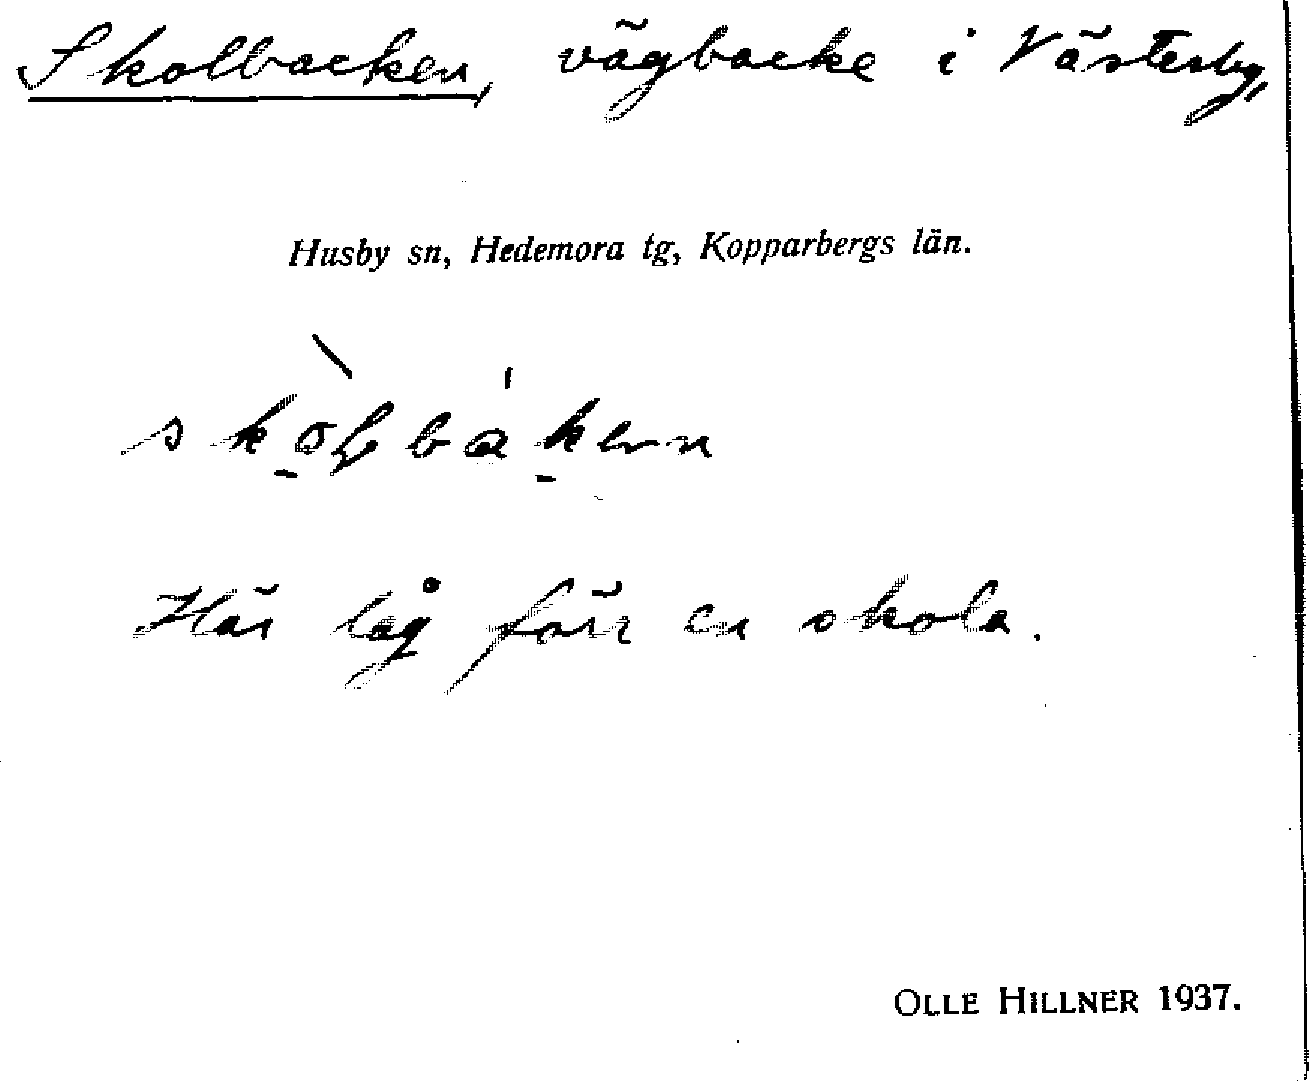 Skolbacken, vägbacke i Västerby,
Husby sn, Hedemora tg, Kopparbergs län.
Här låg förr en skola.
OLLE HILLNER 1937.